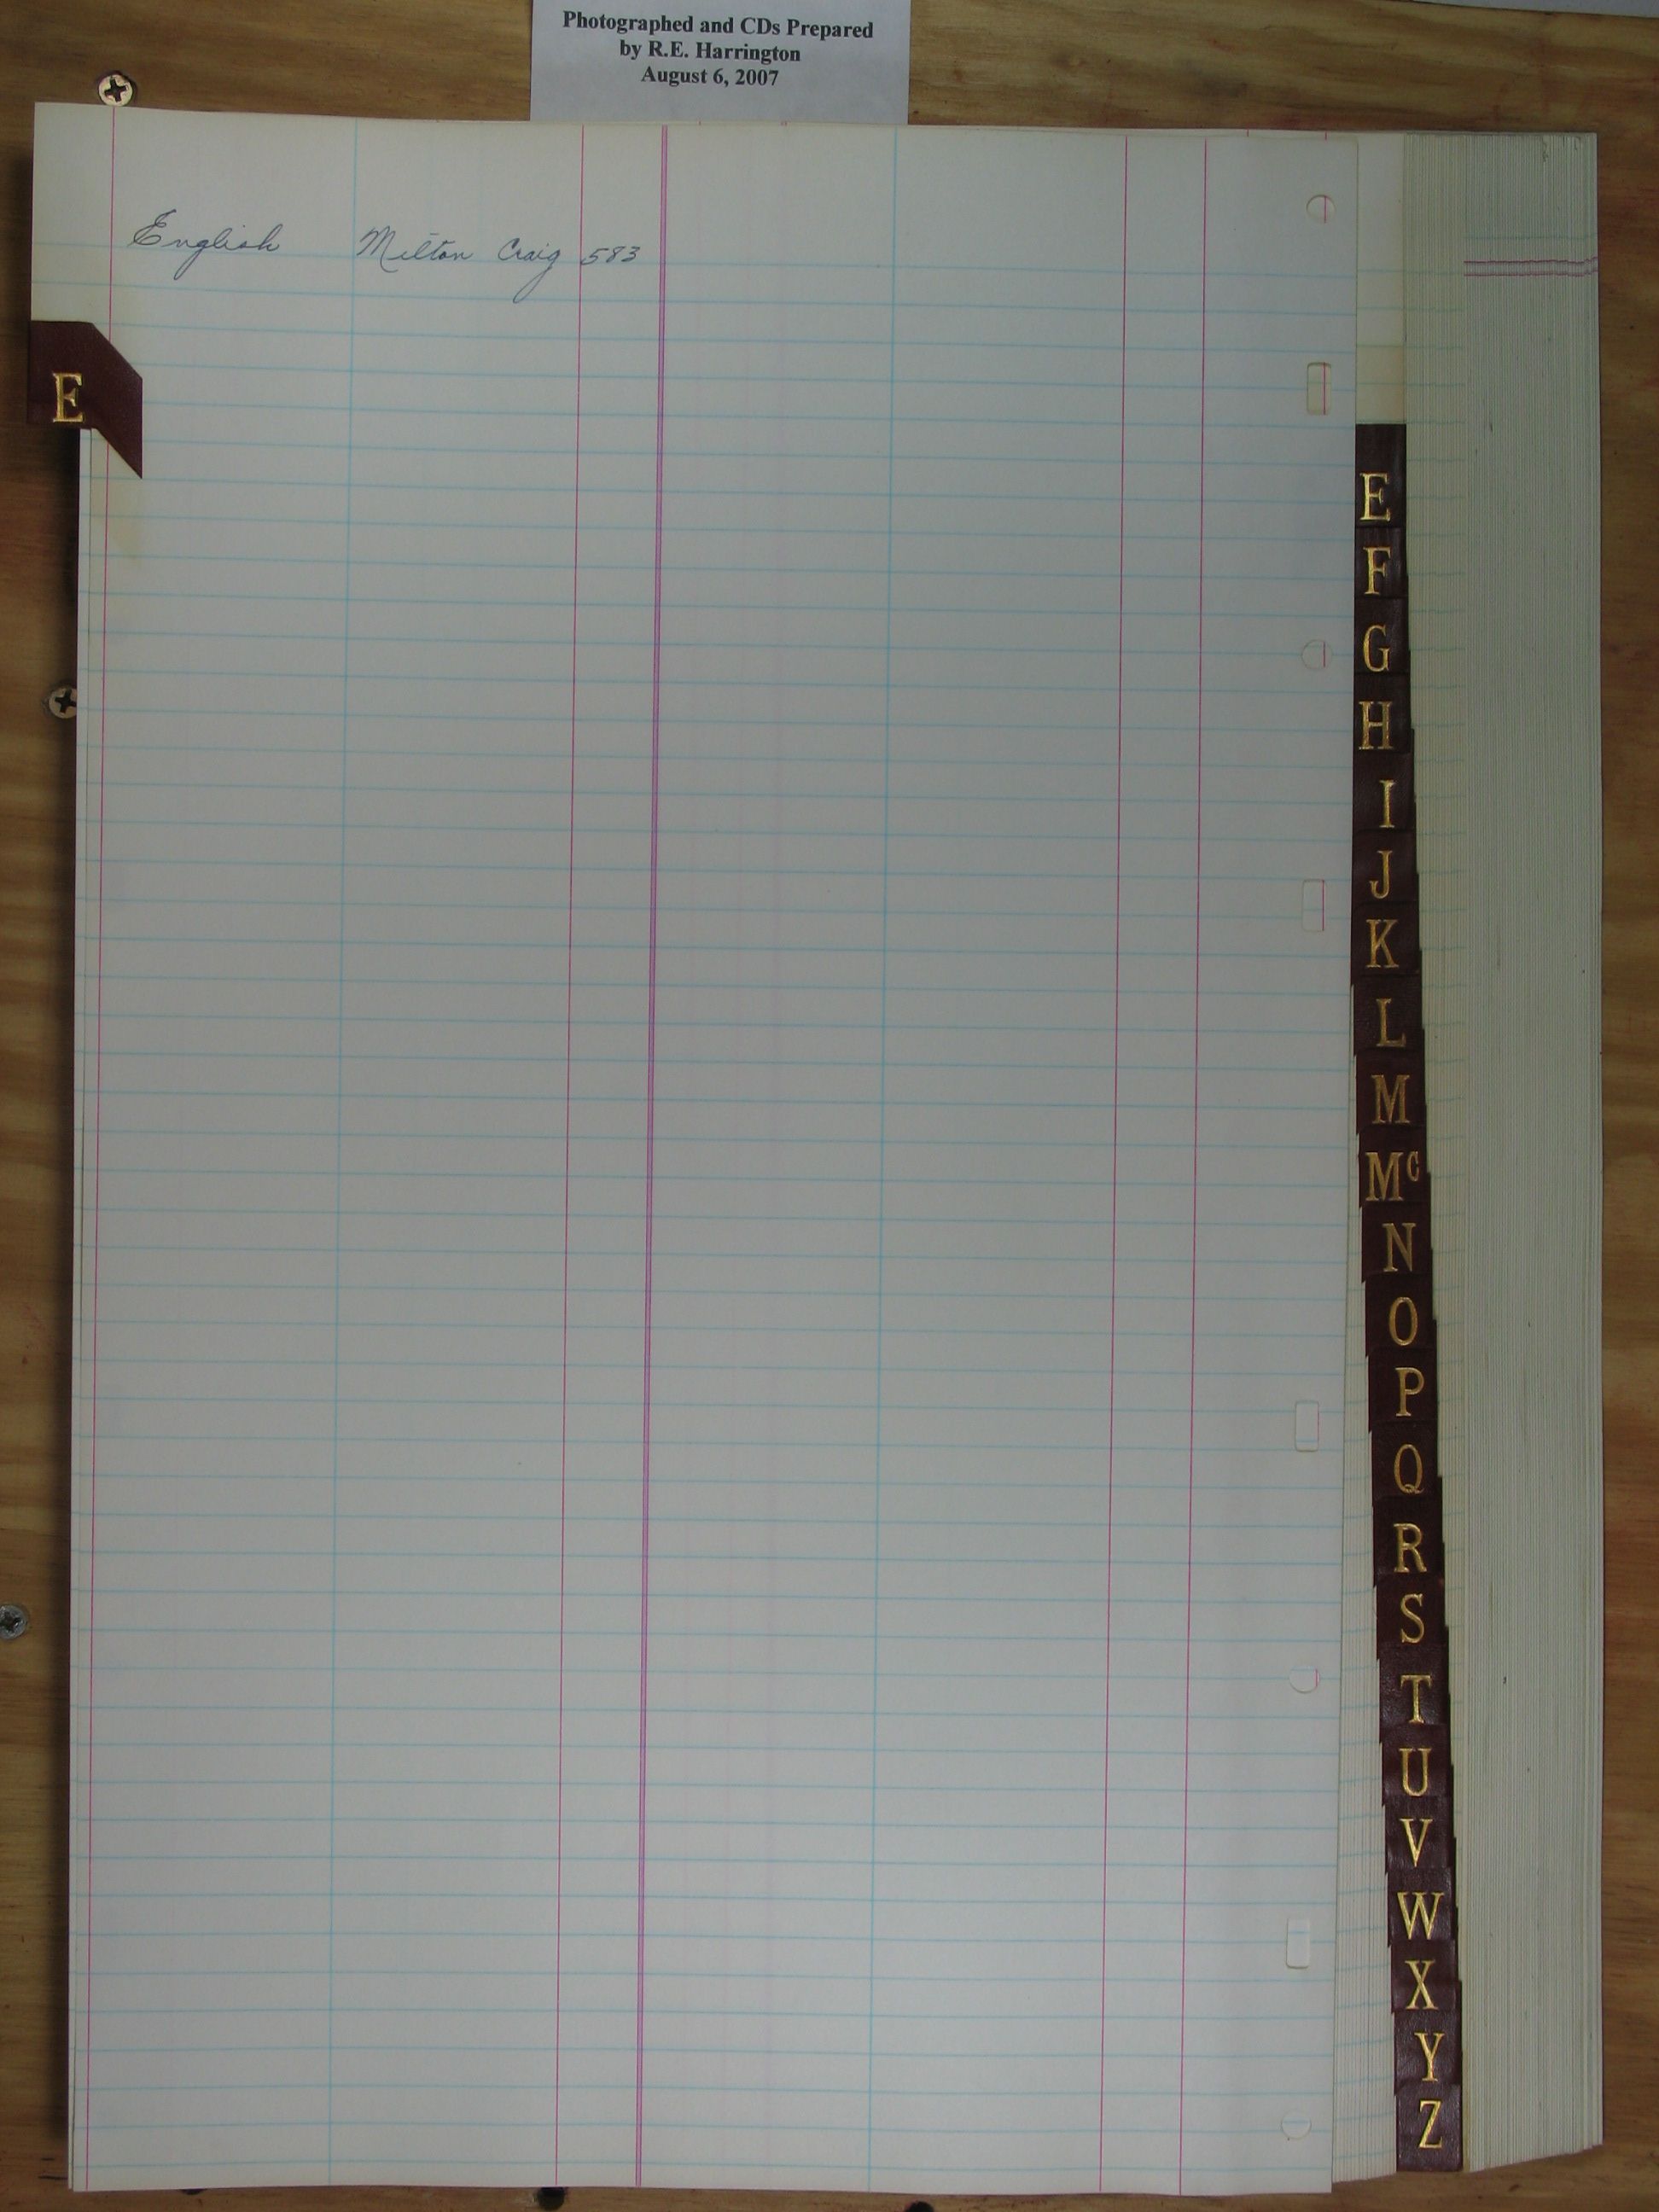 Photographed and CDs Prepared
by R.E. Harrington
August 6, 2007
English Milton Craig 583
E
E
F
G
H
I
J
K
L
M
Mc
N
O
P
Q
R
S
T
U
V
W
X
Y
Z